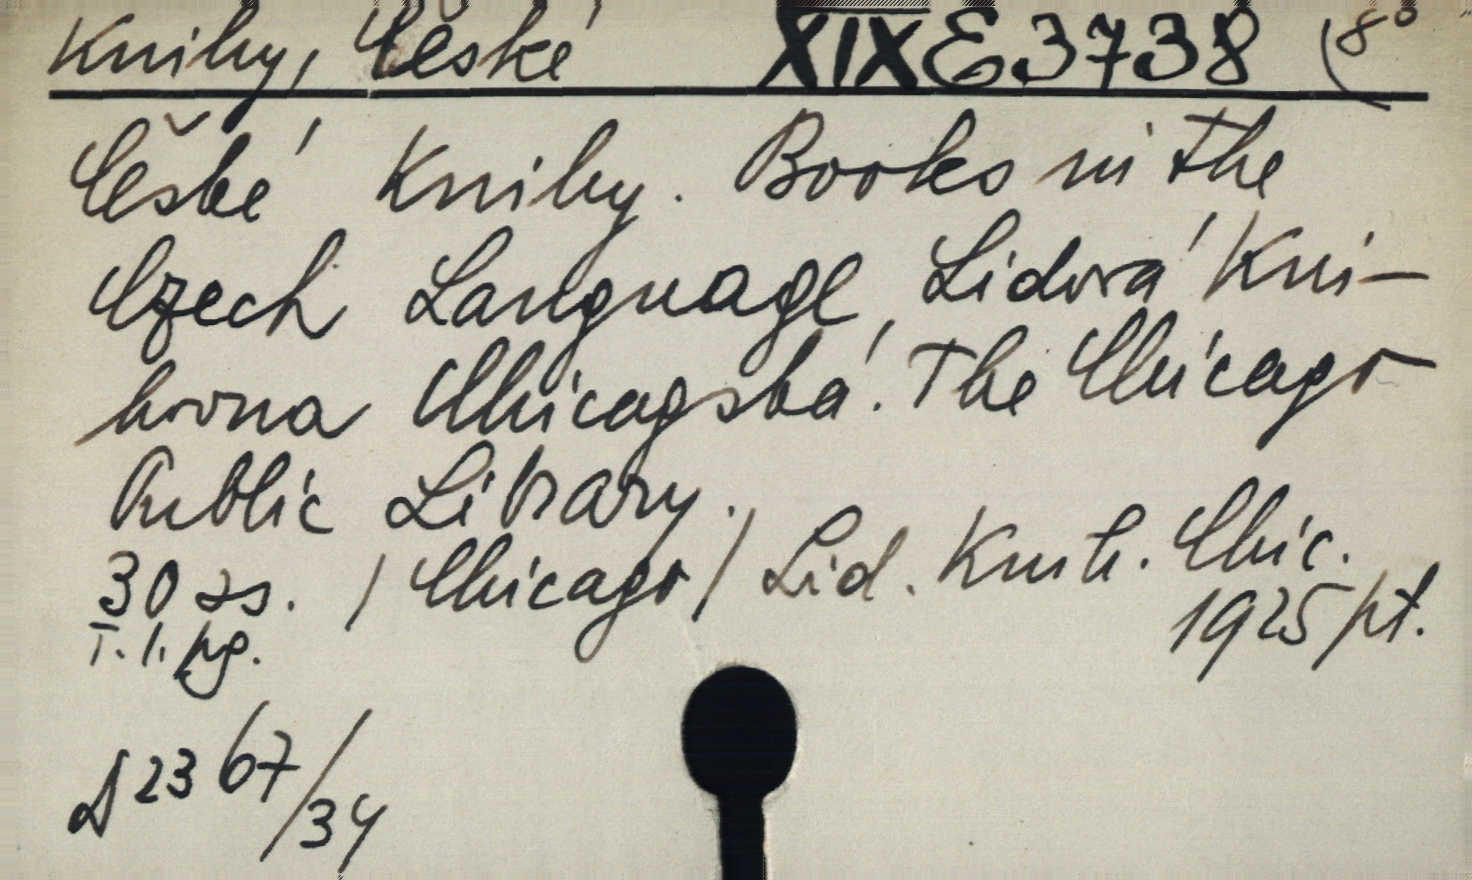 Knihy, České XIX E 3738 (8°
České Knihy. Books in the
Czech Language, Lidová Kni-
hovna Chicagská. The Chicago
Public Library.
30 ss. /Chicago/ Lid. Knih. Chic.
1925 pt.
I. l. pg.
D 23 67/34